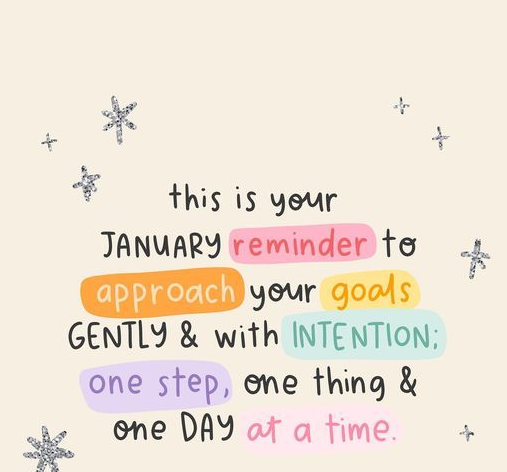 this is your
JANUARY reminder to
approach your goals
GENTLY & with INTENTION;
one step, one thing &
one DAY at a time.